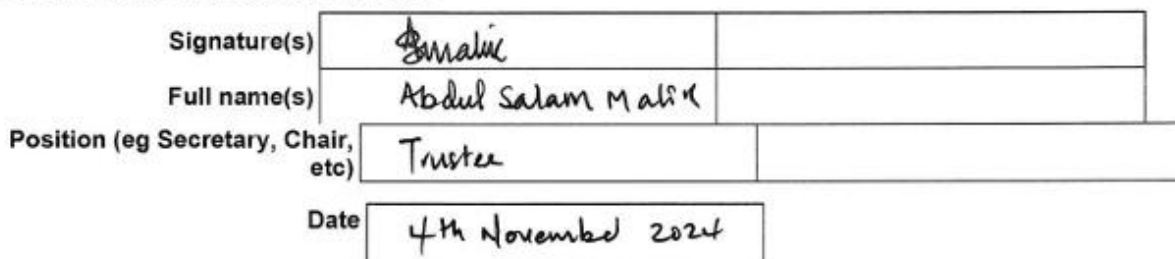 Signature(s) ASmalik
Full name(s) Abdul Salam Malik
Position (eg Secretary, Chair,
etc) Trustee
Date 4th November 2024